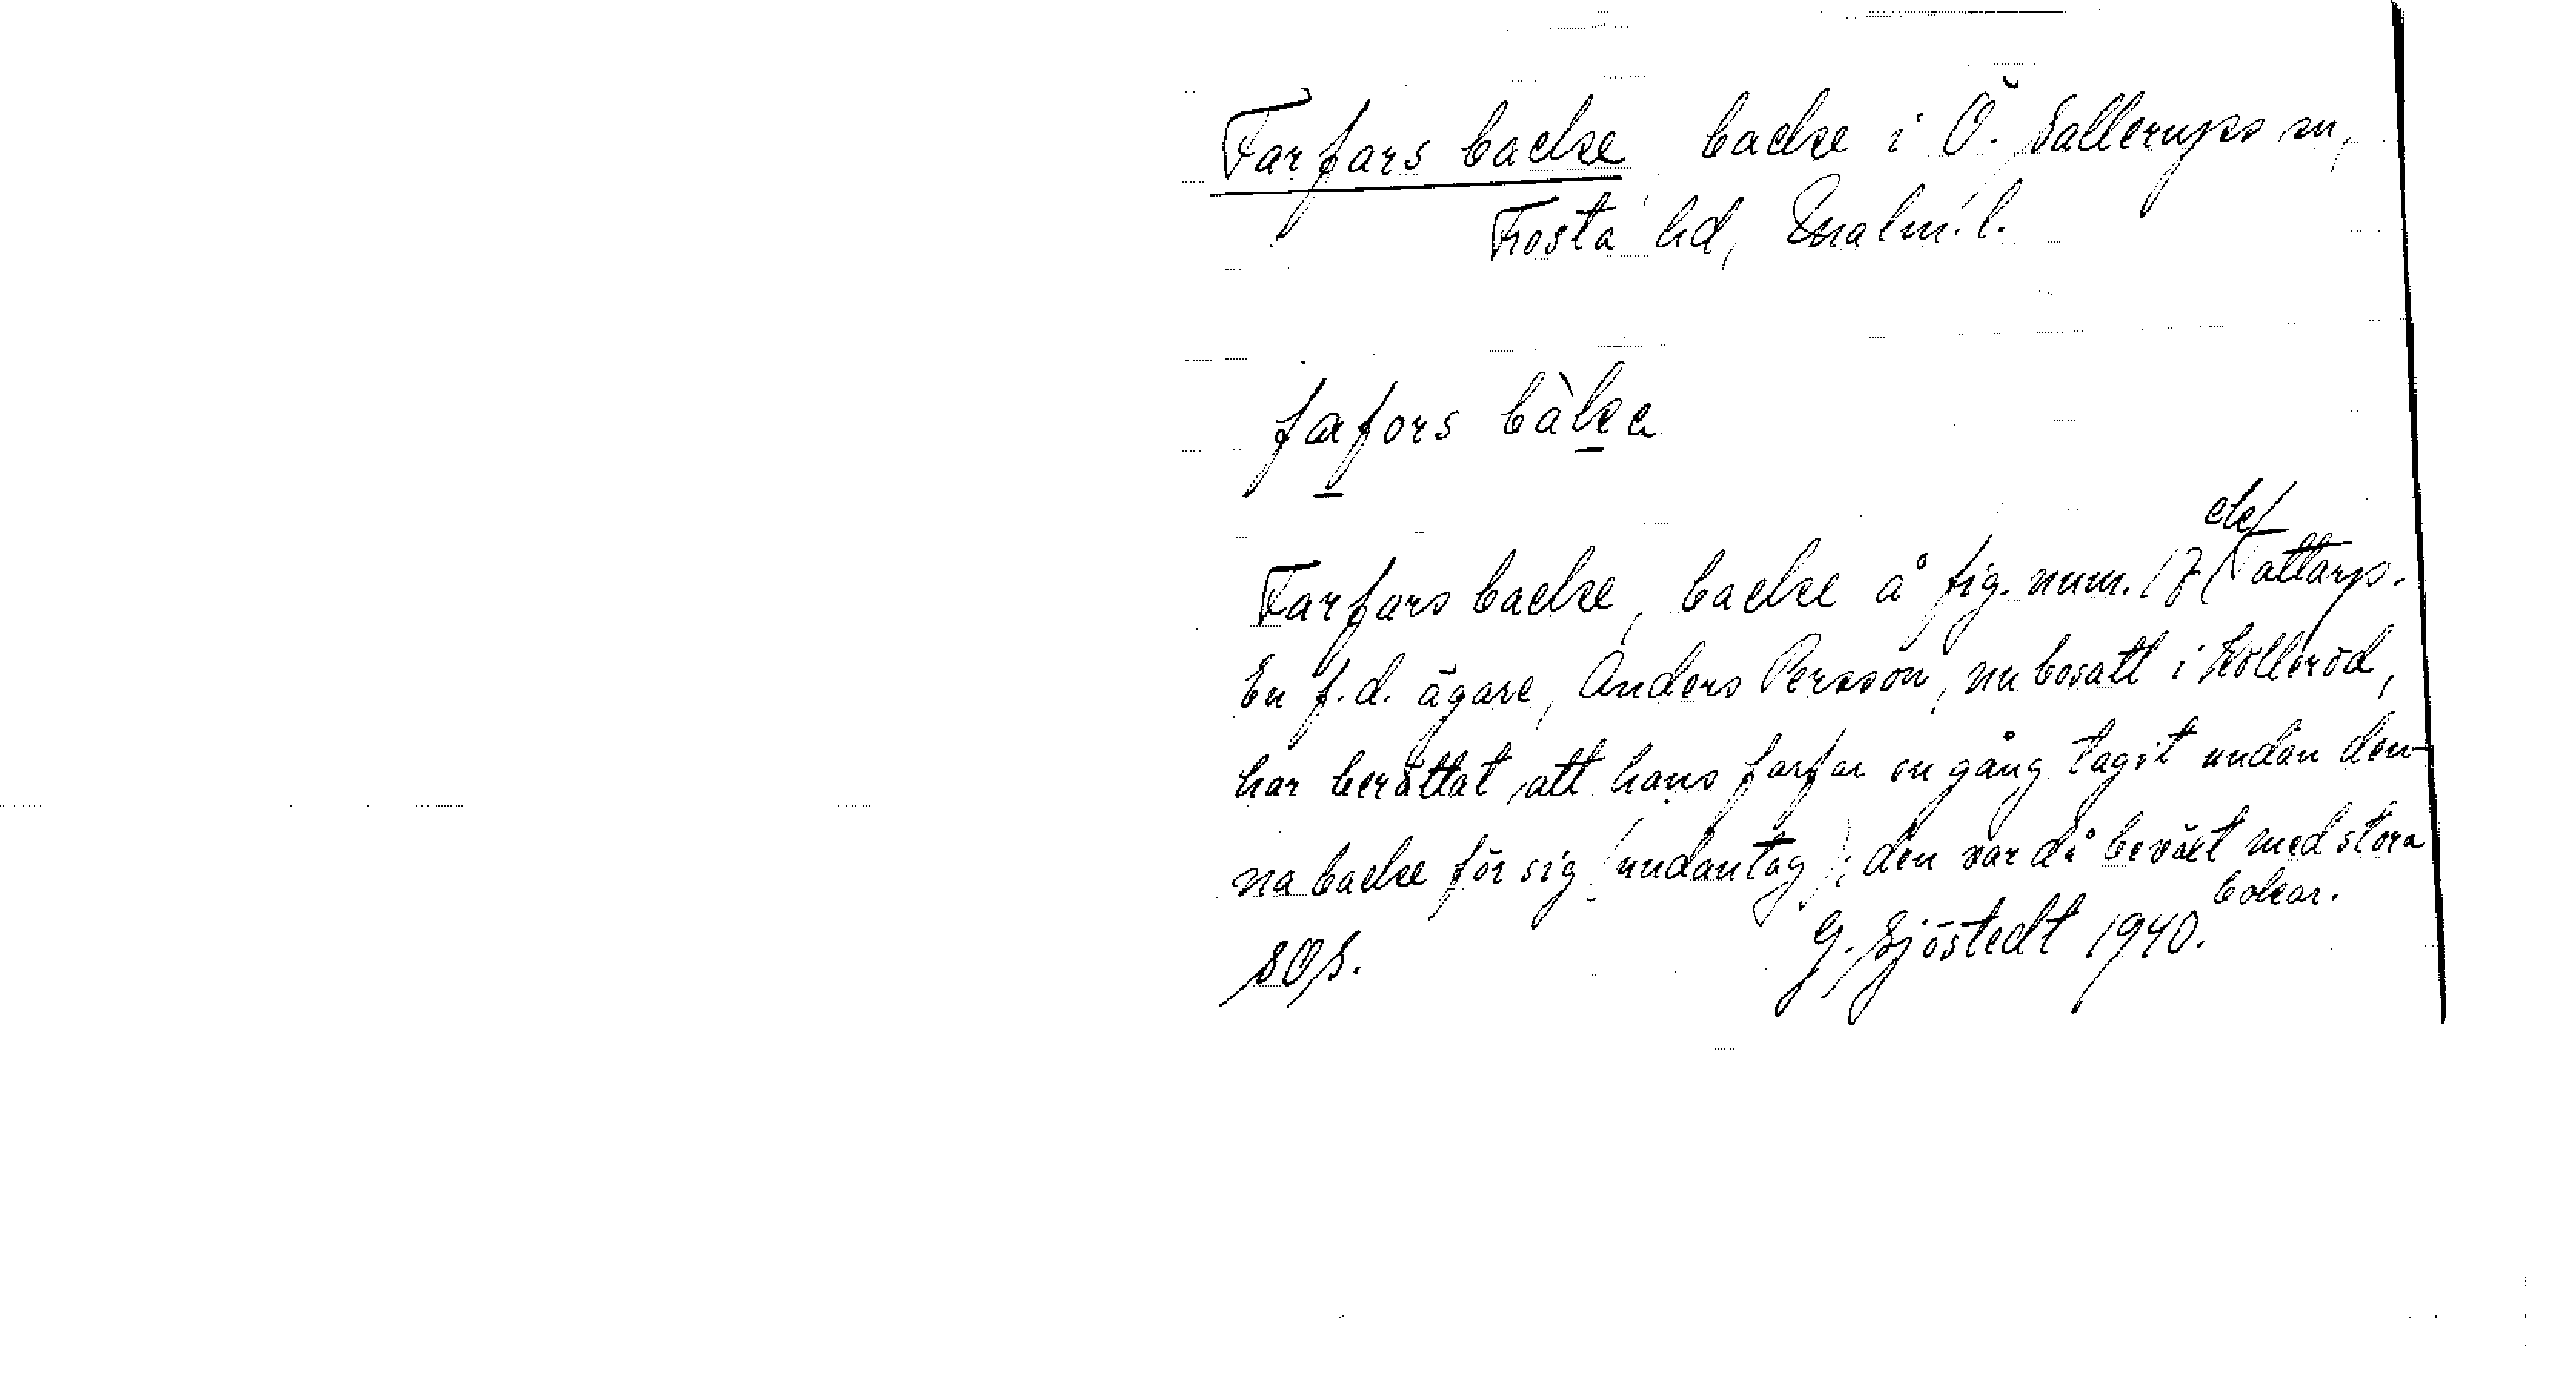 Farfars backe backe i Ö. Sallerups sn,
Frosta hd, Malm. l.
fafors bàkɐ
Farfars backe, backe å fig. num. 17 Vattarp.
En f.d. ägare, Anders Persson, nu bosatt i Kolleröd,
har berättat, att hans farfar en gång tagit undan den-
na backe för sig (undantag); den var då beväxt med stora
bokar.
SOS. G. Sjöstedt 1940.